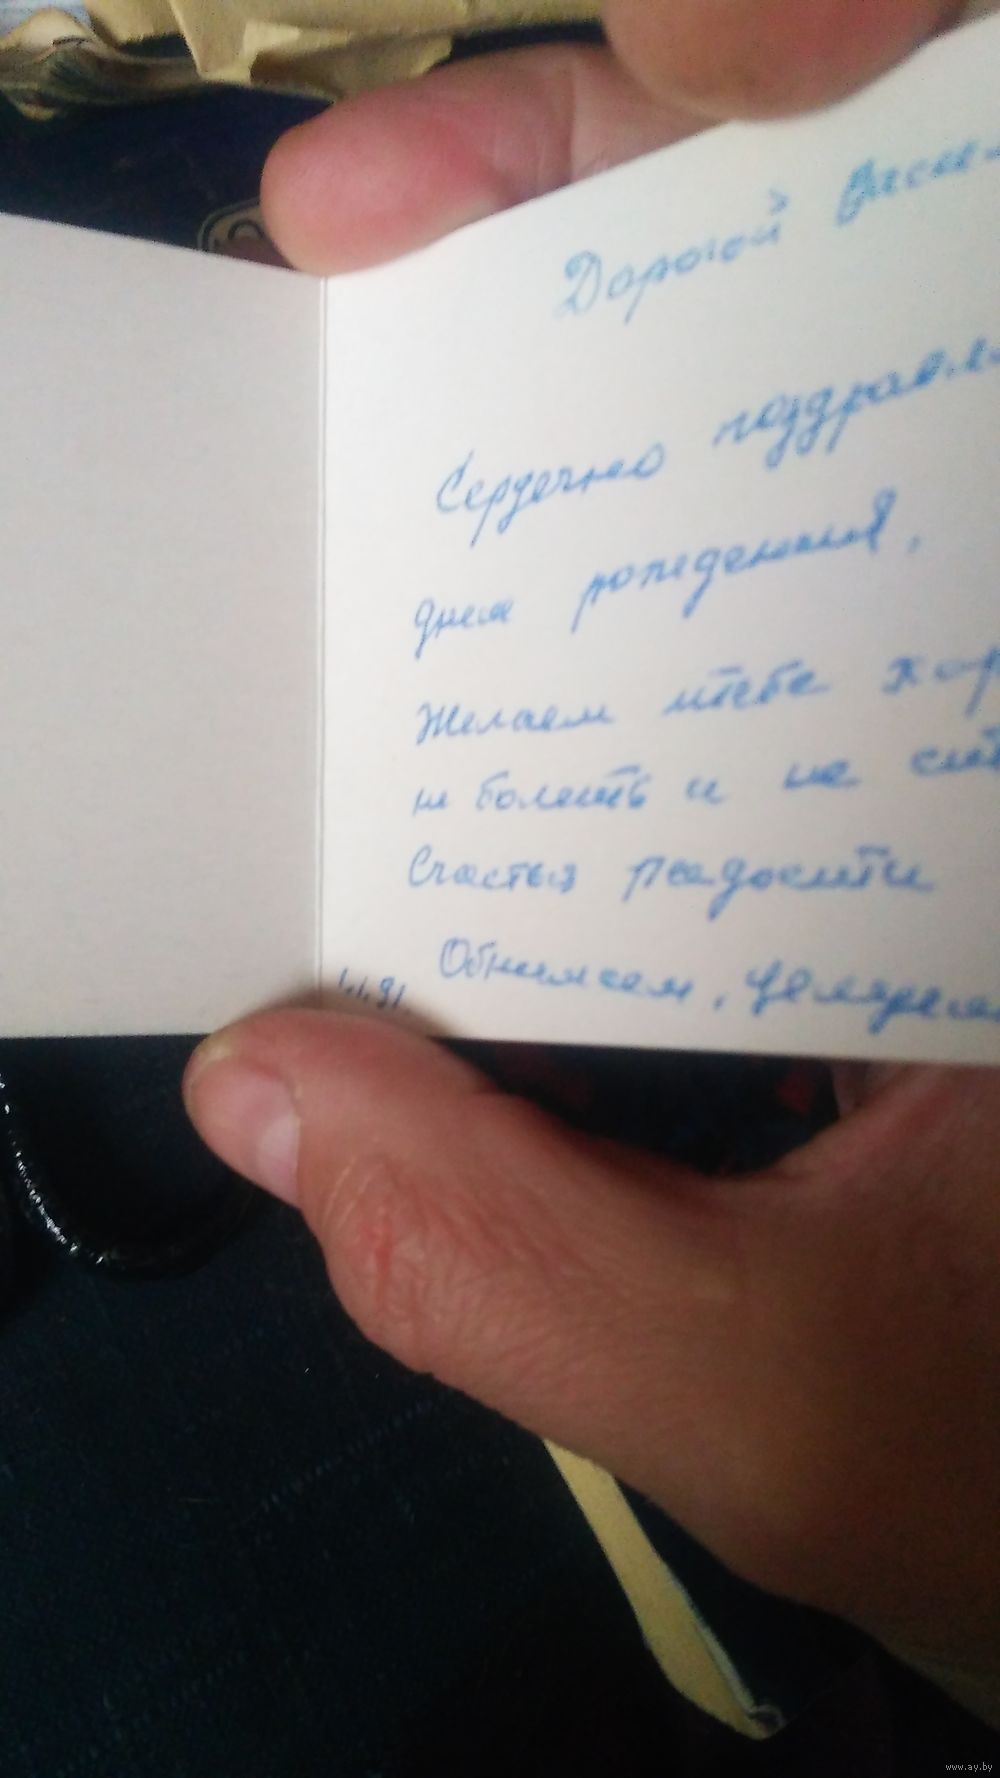 Дорогой Васил
Сердечно поздравля
днем рождения,
Желаем тебе хор
не болеть и не
Счастья радости
Обнимаем, целуем
www.ay.by